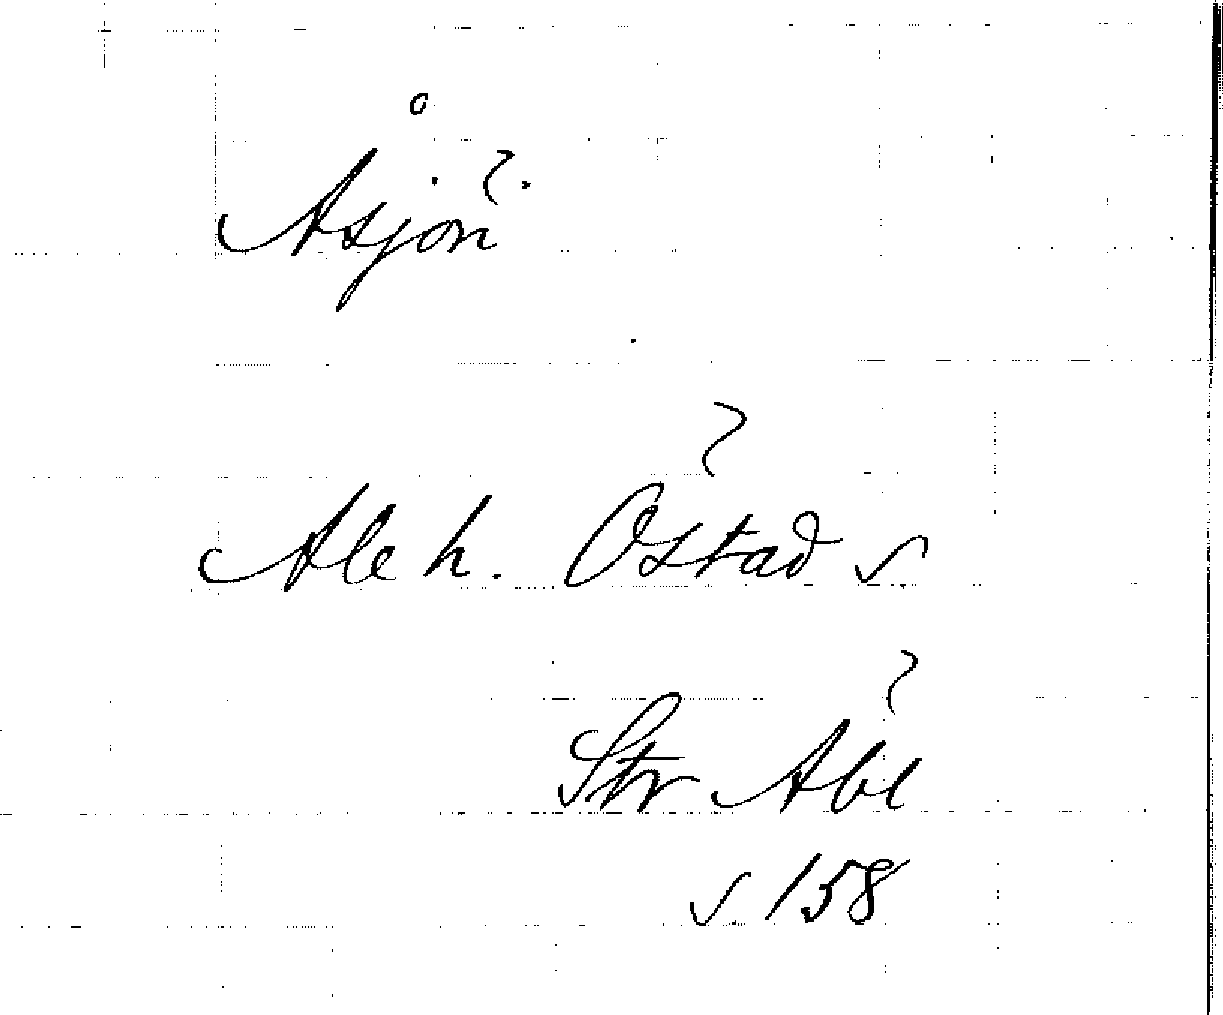 Åsjön
Ale h. Östad s
Str Abl
s 158